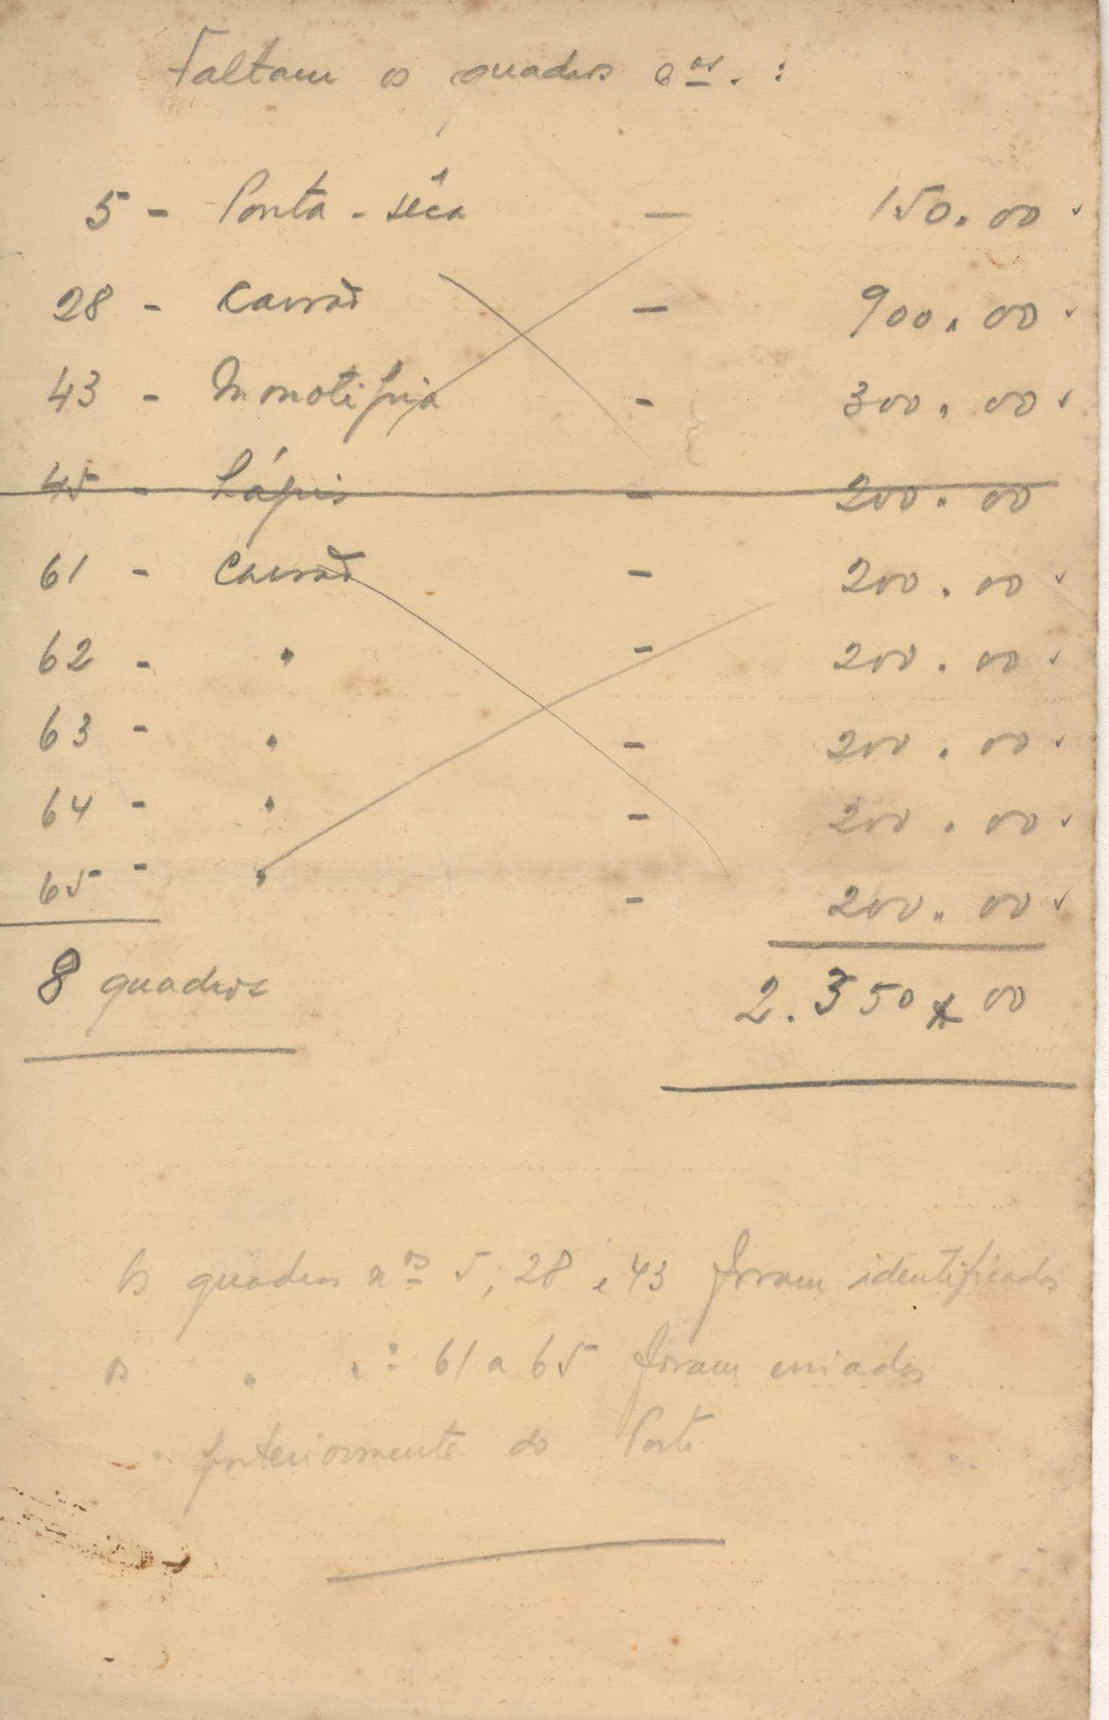 Faltam os quadros nos. :
5 - Ponta-sêca - 150.00
28 - Carvão - 900.00
43 - Monotipia - 300.00
45 - Lápis - 200.00
61 - Carvão - 200.00
62 - " - 200.00
63 - " - 200.00
64 - " - 200.00
65 - " - 200.00
8 quadros 2.350 00
Os quadros nos 5, 28 e 43 foram identificados
os " " 61 a 65 foram enviados
posteriormente do Porto